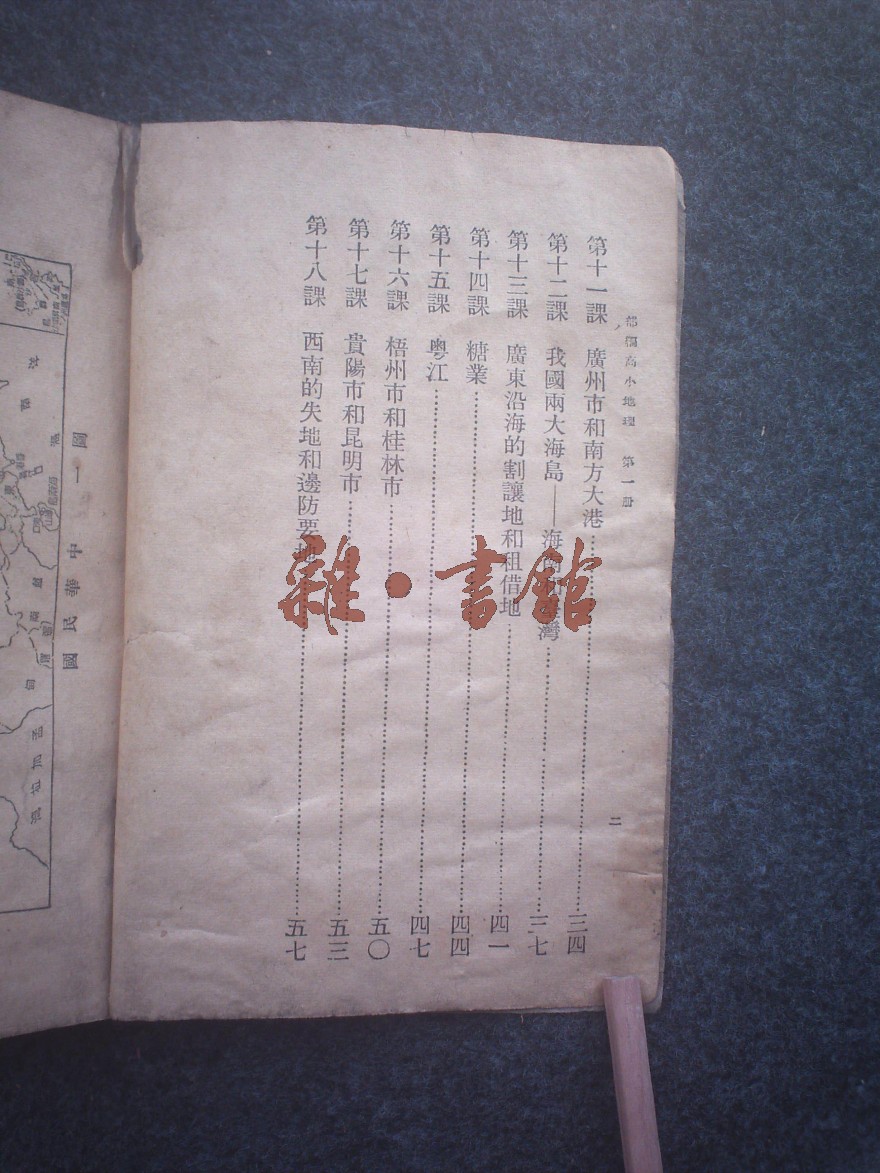 部編高小地理 第一冊
第十一課 廣州市和南方大港……三四
第十二課 我國兩大海島——海南和臺灣……三七
第十三課 廣東沿海的割讓地和租借地……四一
第十四課 糖業……四四
第十五課 粵江……四七
第十六課 梧州市和桂林市……五〇
第十七課 貴陽市和昆明市……五三
第十八課 西南的失地和邊防要地……五七
二
雜·書館
圖一 中華民國